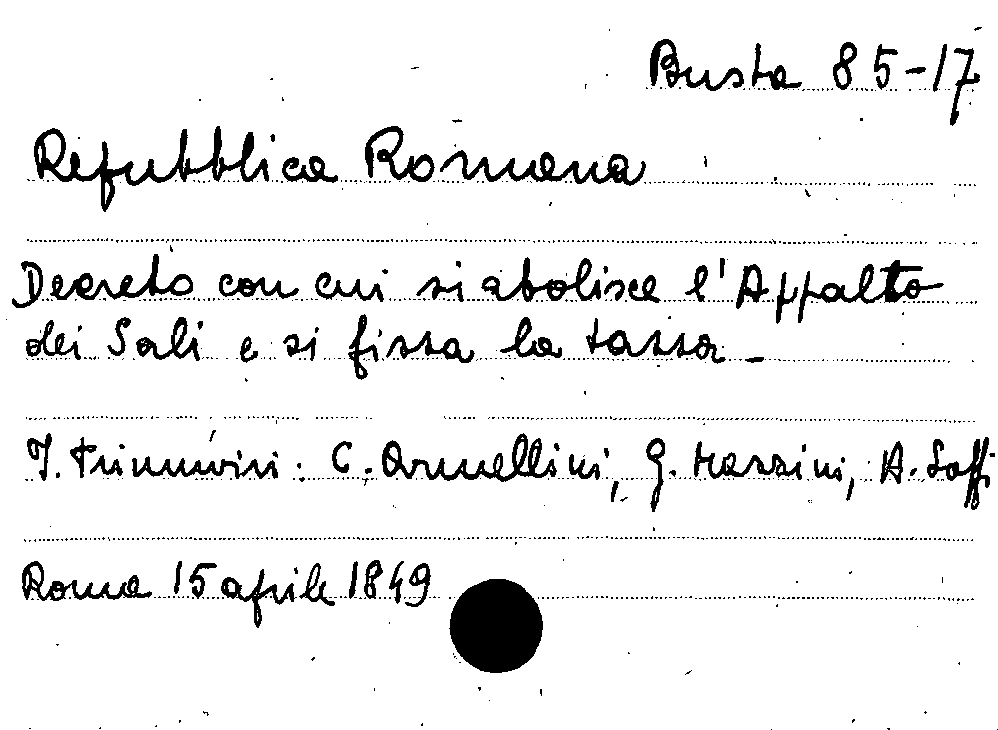 Busta 85-17
Repubblica Romana
Decreto con cui si abolisce l'Appalto
dei Sali e si fissa la tassa -
I. Triumviri: C. Armellini, G. Mazzini, A. Saffi
Roma 15 aprile 1849